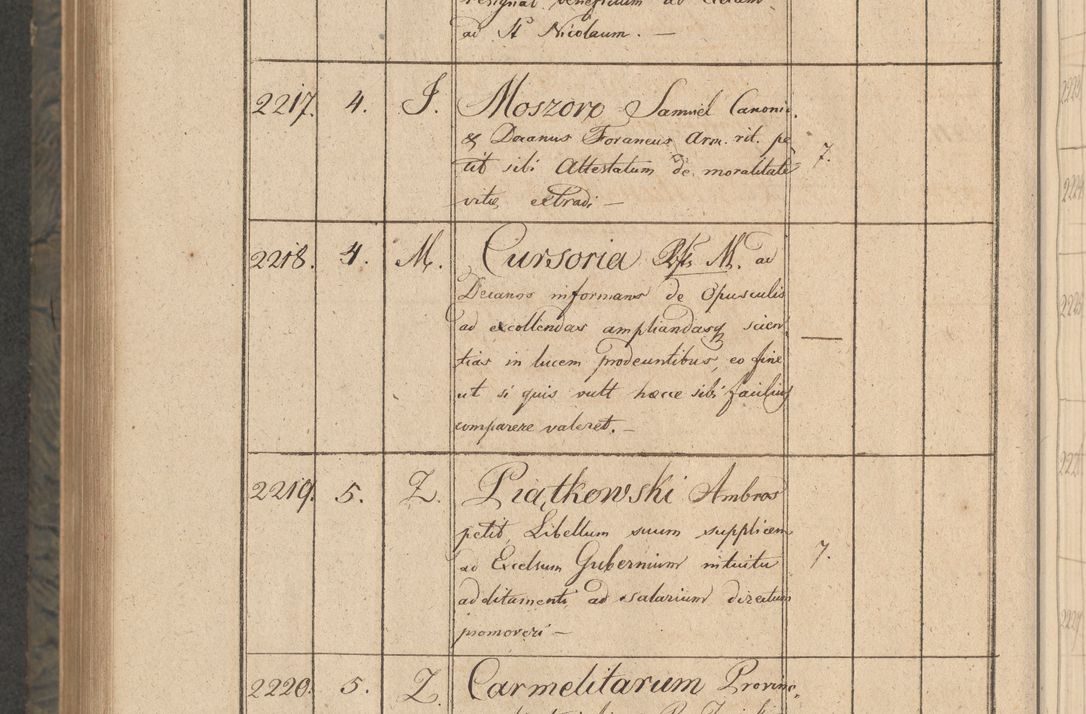 resignat beneficium ad Eccam
ad St Nicolaum. —
2217. 4. J. Moszoro Samuel Canonic.
& Decanus Foraneus Arm. rit. pe
tit sibi Attestatum de moralitate 7.
vitæ extradi —
2218. 4. M. Cursoria M. ad
Decanos informans de Opusculis
ad excollendas ampliandasq scien. —
tias in lucem prodeuntibus, eo fine
ut si quis vult hæcce sibi facilius
comparere valeret. —
2219. 5. Z. Piątkowski Ambros
petit, Libellum suum supplicem
ad Excelsum Gubernium intuitu 7.
additamenti ad salarium directum
promoveri —
2220. 5. Z. Carmelitarum Provinc.